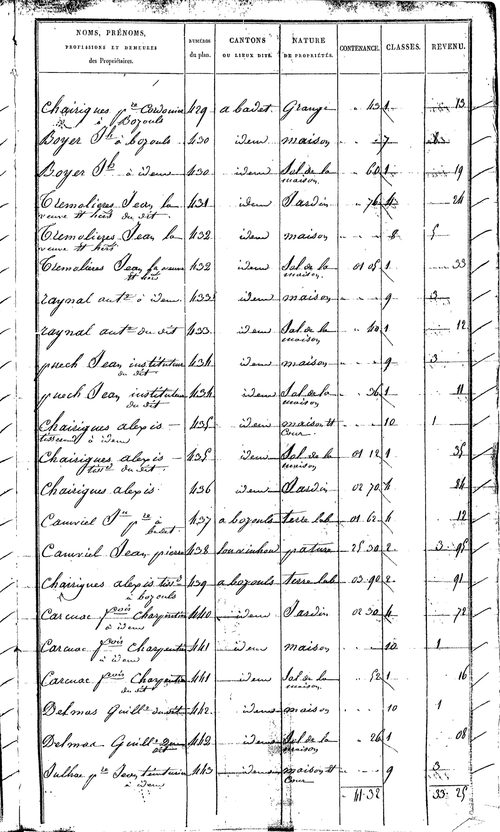 NOMS, PRÉNOMS, PROFESSIONS ET DEMEURES des Propriétaires. | NUMÉROS du plan. | CANTONS OU LIEUX DITS. | NATURE DE PROPRIÉTÉS. | CONTENANCE. | CLASSES. | REVENU.
Chairigues pre Cordonnier à Bozouls 429 a badet Grange 43 1 13
Boyer Jh à bozouls 430 idem maison 7
Boyer Jh à idem 430 idem Sol de la maison 60 1 19
Tremolieres Jean la veuve et hers du dit 431 idem Jardin 76 4 24
Tremolieres Jean la veuve et hers 432 idem maison 8 5
Tremolieres Jean la veuve et hers 432 idem Sol de la maison 01 05 1 33
raynal ante à idem 433 idem maison 9 3
raynal ante du dit 433 idem Sol de la maison 40 1 12
puech Jean instituteur du dit 434 idem maison 9 3
puech Jean instituteur du dit 434 idem Sol de la maison 36 1 11
Chairigues alexis tisserand à idem 435 idem maison et Cour 10 1
Chairigues alexis tissd du dit 435 idem Sol de la maison 01 12 1 35
Chairigues alexis 436 idem Jardin 02 70 4 84
Canviel Jn pre à badet 437 a bozouls terre lab 01 62 4 12
Canviel Jean pierre 438 pature 25 30 2 3 95
Chairigues alexis tissd à bozouls 439 a bozouls terre lab 03 90 2 91
Carcuac fcois Charpentier à idem 440 idem Jardin 02 30 4 72
Carcuac fcois Charpentier à idem 441 idem maison 10 1
Carcuac fcois Charpentier du dit 441 idem Sol de la maison 52 1 16
Delmas Guille du dit 442 idem maison 10 1
Delmas Guille du dit 442 idem Sol de la maison 26 1 08
Julhae pre Jean teinturier à idem 443 idem maison et Cour 9 3
41 32 33 25